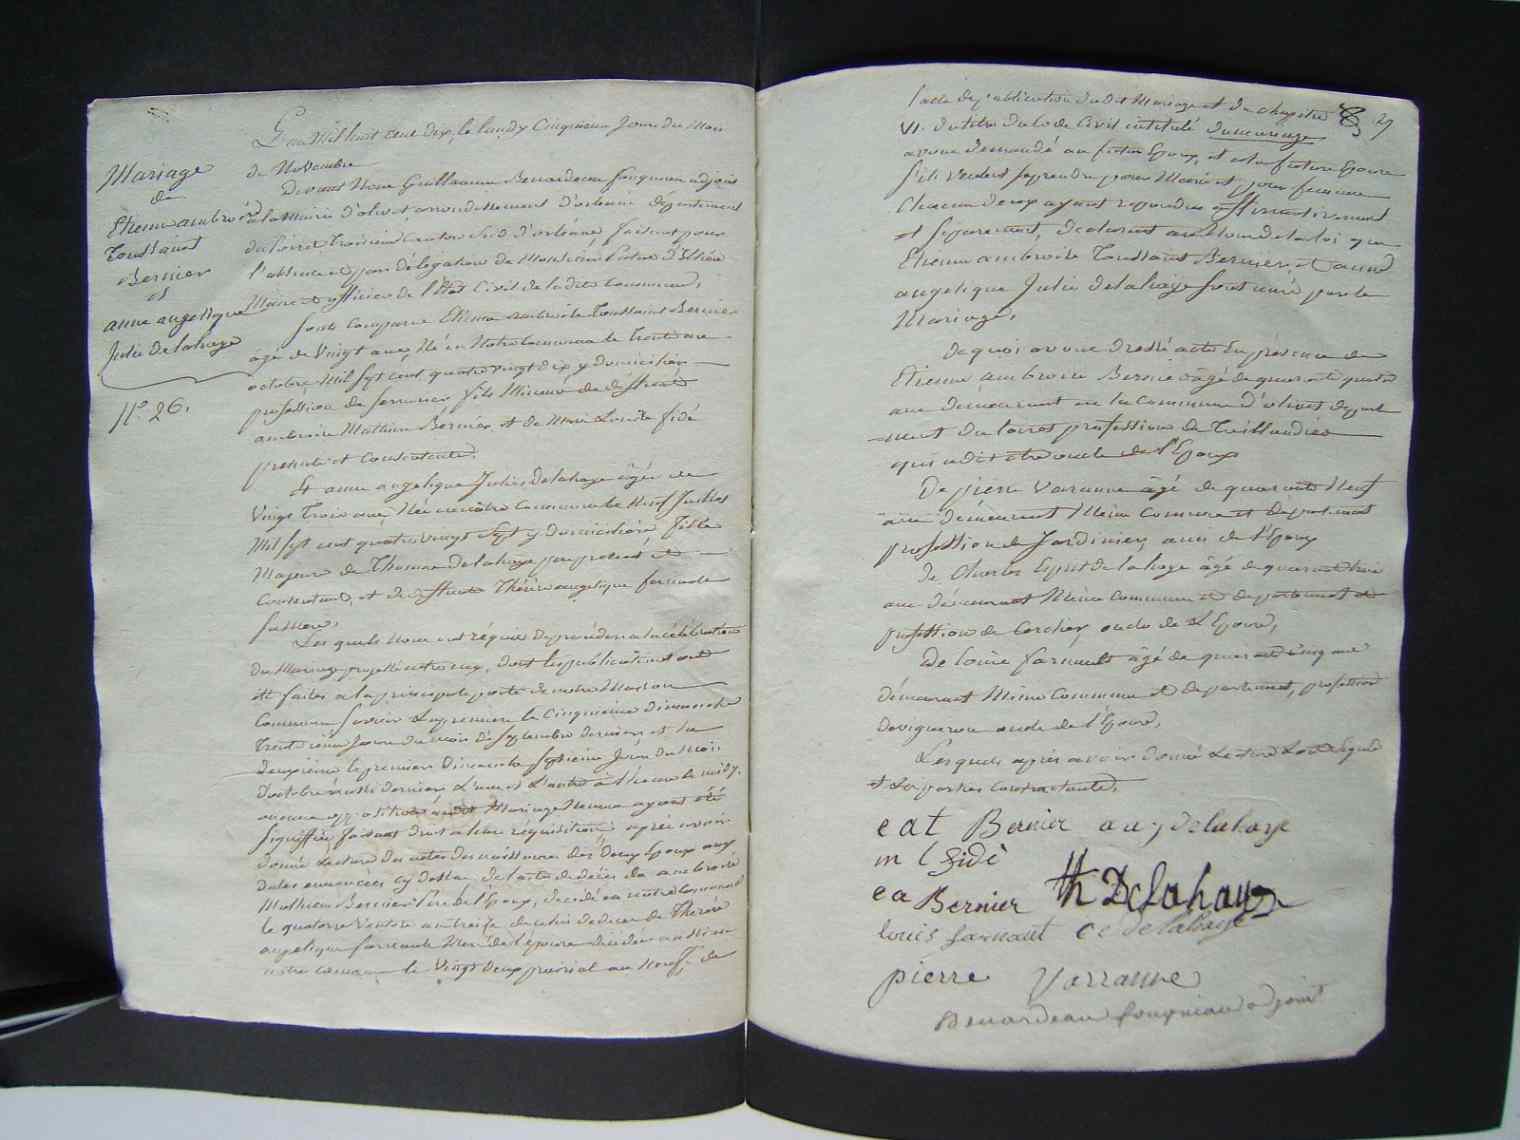 Mariage
de
Etienne ambroise
Toussaint
Bernier
et
anne angelique
Julie Delahaye
N.º 26.
L'an Mil huit cent dix, le lundy Cinquieme Jour du Mois
de Novembre
Devant Nous Guillaume Benardeau fougneau adjoint
a la Mairie d'olivet arrondissement d'orleans département
du Loiret Troisieme Canton Sud d'orléans faisant pour
l'absence et par délégation de Monsieur
Maire et officier de l'Etat Civil de la dite Commune,
Sont Comparu Etienne ambroise Toussaint Bernier
âgé de Vingt ans, Né en Notre Commune le Trente un
octobre Mil sept cent quatre vingt dix, y domicilié
profession de serrurier fils Mineur de deffunt
ambroise Mathieu Bernier, et de Marie Louise fidé
presente et Consentante.
Et anne angelique Julie Delahaye âgée de
Vingt Trois ans, Née en nôtre Commune le Neuf Juillet
Mil sept cent quatre vingt sept y domiciliée fille
Majeure de Thomas Delahaye pere present et
Consentant, et de deffunte Thérèse angelique farnault
sa Mere,
Les quels Nous ont réquis De procéder a la célébration
du Mariage projetté entre eux, dont les publications ont
été faites a la principale porte de notre Maison
Commune savoir La premiere le Cinquieme dimanche
Trentieme Jour du mois de septembre dernier, et la
deuxieme le premier Dimanche septieme Jour du Mois
D'octobre aussi dernier L'une et L'autre à l'heure de midy.
aucune opposition au dit Mariage Ne nous ayant été
signiffiée faisant droit a leur réquisition, après avoir
donné Lecture des actes de naissances des deux Epoux aux
dates enoncées cy dessus, de l'acte de décès de ambroise
Mathieu Bernier Pere de l'Epoux, décédé en notre Commune
le quatorze Ventose an treize, de celui de décès de Thérèse
angelique farnault Mere de l'épouse décédée en Même
notre Commune le Vingt deux prairial an Neuf, de
29
l'acte de publication du dit Mariage et du chapitre
VI. du titre du Code Civil intitulé Du mariage
avons demandé au futur Epoux, et a la future Epouse
s'ils veulent se prendre pour Mari et pour femme
Chacun d'eux ayant repondu affirmativement
et séparément, declarons au Nom de la loi que
Etienne ambroise Toussaint Bernier, et anne
angelique Julie Delahaye sont unis par le
Mariage,
De quoi avons Dressé acte En présence de
Etienne ambroise Bernier âgé de quarante quatre
ans Demeurant en la Commune d'olivet départ-
ment du loiret profession de Taillandier
qui a dit être oncle de l'Epoux
De pierre Varanne âgé de quarante Neuf
ans demeurant Même Commune et département
profession de Jardinier, ami de l'Epoux
de Charles Esprit Delahaye âgé de quarante trois
ans démeurant Même Commune et département et
profession de Cercher, oncle de L'Epouse,
de louis farnault âgé de quarante Cinq ans
démeurant Même Commune et département, profession
De vigneron oncle de l'Epouse,
Lesquels après avoir donné Lecture L'ont signé
et les parties Contractantes,
e a t Bernier a a j delahaye
m l fidé
e a Bernier th Delahaye
louis farnault c e delahaye
pierre Varranne
Benardeau fougneau adjoint